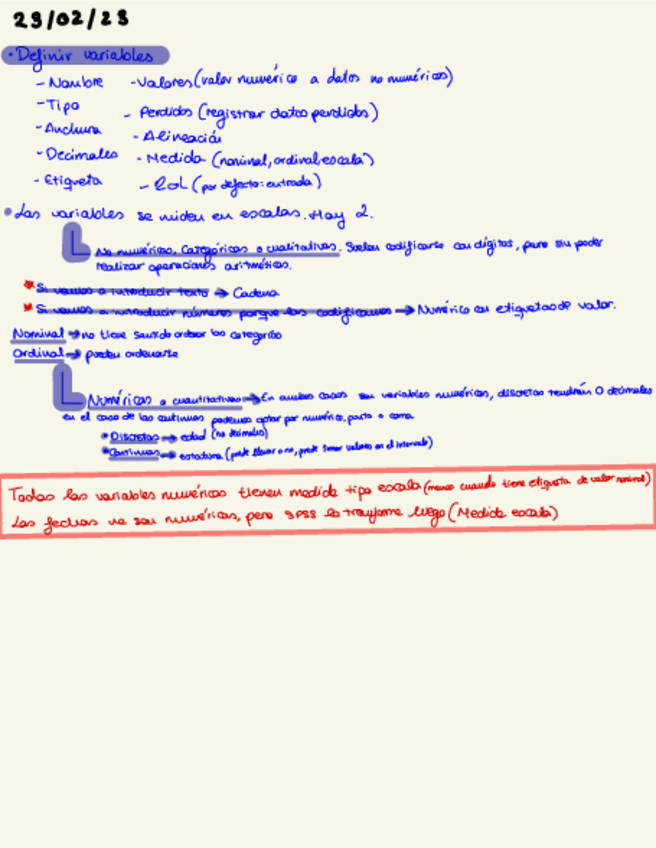 23/02/23
• Definir variables
- Nombre - Valores (valor numérico a datos no numéricos)
- Tipo - Perdidos (registrar datos perdidos)
- Anchura - Alineación
- Decimales - Medida (nominal, ordinal, escala)
- Etiqueta - Rol (por defecto: entrada)
• Las variables se miden en escalas. Hay 2.
No numéricas, Categóricas o cualitativas. Suelen codificarse con dígitos, pero sin poder
realizar operaciones aritméticas.
* Si vamos a introducir texto → Cadena
* Si vamos a introducir números porque las codificamos → Numérico con etiquetas de valor.
Nominal → no tiene sentido ordenar las categorías
Ordinal → pueden ordenarse
Numéricas o cuantitativas → En ambos casos son variables numéricas, discretas tendrán 0 decimales
en el caso de las continuas podemos optar por numérico, punto o coma
• Discretas → edad (no decimales)
• Continuas → estatura (puede llevar o no, puede tomar valores en el intervalo)
Todas las variables numéricas tienen medida tipo escala (menos cuando tiene etiqueta de valor nominal)
Las fechas no son numéricas, pero SPSS lo transforma luego (Medida escala)